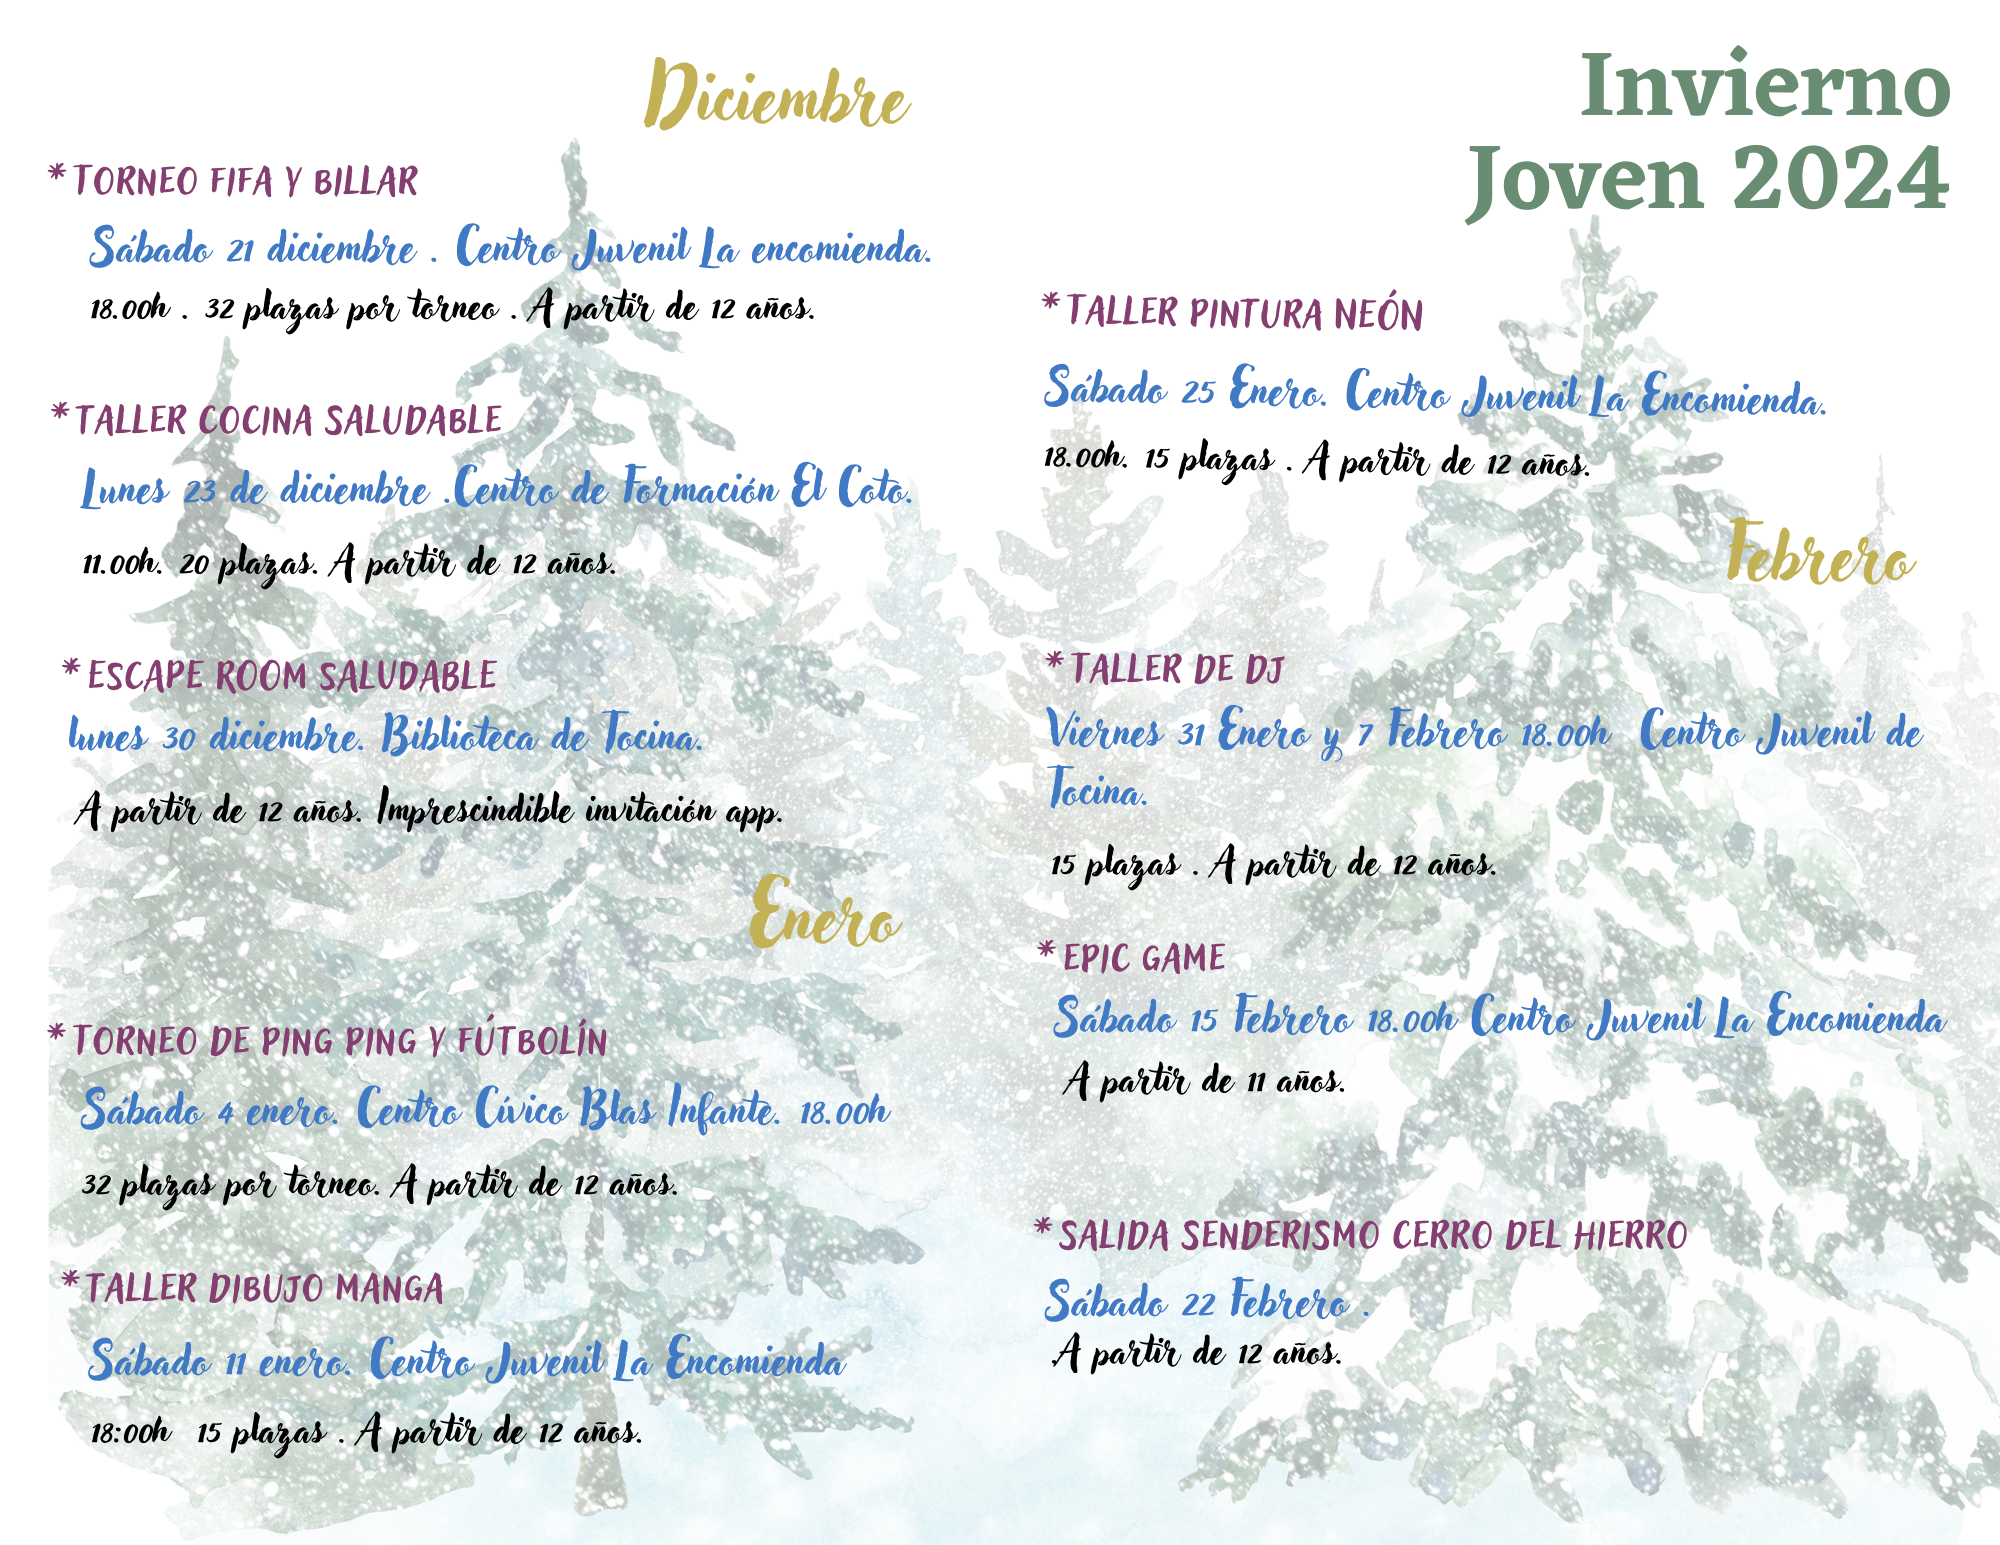 Diciembre
*TORNEO FIFA Y BILLAR
Sábado 21 diciembre . Centro Juvenil La encomienda.
18.00h . 32 plazas por torneo . A partir de 12 años.
*TALLER COCINA SALUDABLE
Lunes 23 de diciembre .Centro de Formación El Coto.
11.00h. 20 plazas. A partir de 12 años.
*ESCAPE ROOM SALUDABLE
lunes 30 diciembre. Biblioteca de Tocina.
A partir de 12 años. Imprescindible invitación app.
Enero
*TORNEO DE PING PING Y FÚTBOLÍN
Sábado 4 enero. Centro Cívico Blas Infante. 18.00h
32 plazas por torneo. A partir de 12 años.
*TALLER DIBUJO MANGA
Sábado 11 enero. Centro Juvenil La Encomienda
18:00h 15 plazas . A partir de 12 años.
Invierno
Joven 2024
*TALLER PINTURA NEÓN
Sábado 25 Enero. Centro Juvenil La Encomienda.
18.00h. 15 plazas . A partir de 12 años.
Febrero
*TALLER DE DJ
Viernes 31 Enero y 7 Febrero 18.00h Centro Juvenil de
Tocina.
15 plazas . A partir de 12 años.
*EPIC GAME
Sábado 15 Febrero 18.00h Centro Juvenil La Encomienda
A partir de 11 años.
*SALIDA SENDERISMO CERRO DEL HIERRO
Sábado 22 Febrero .
.A partir de 12 años.